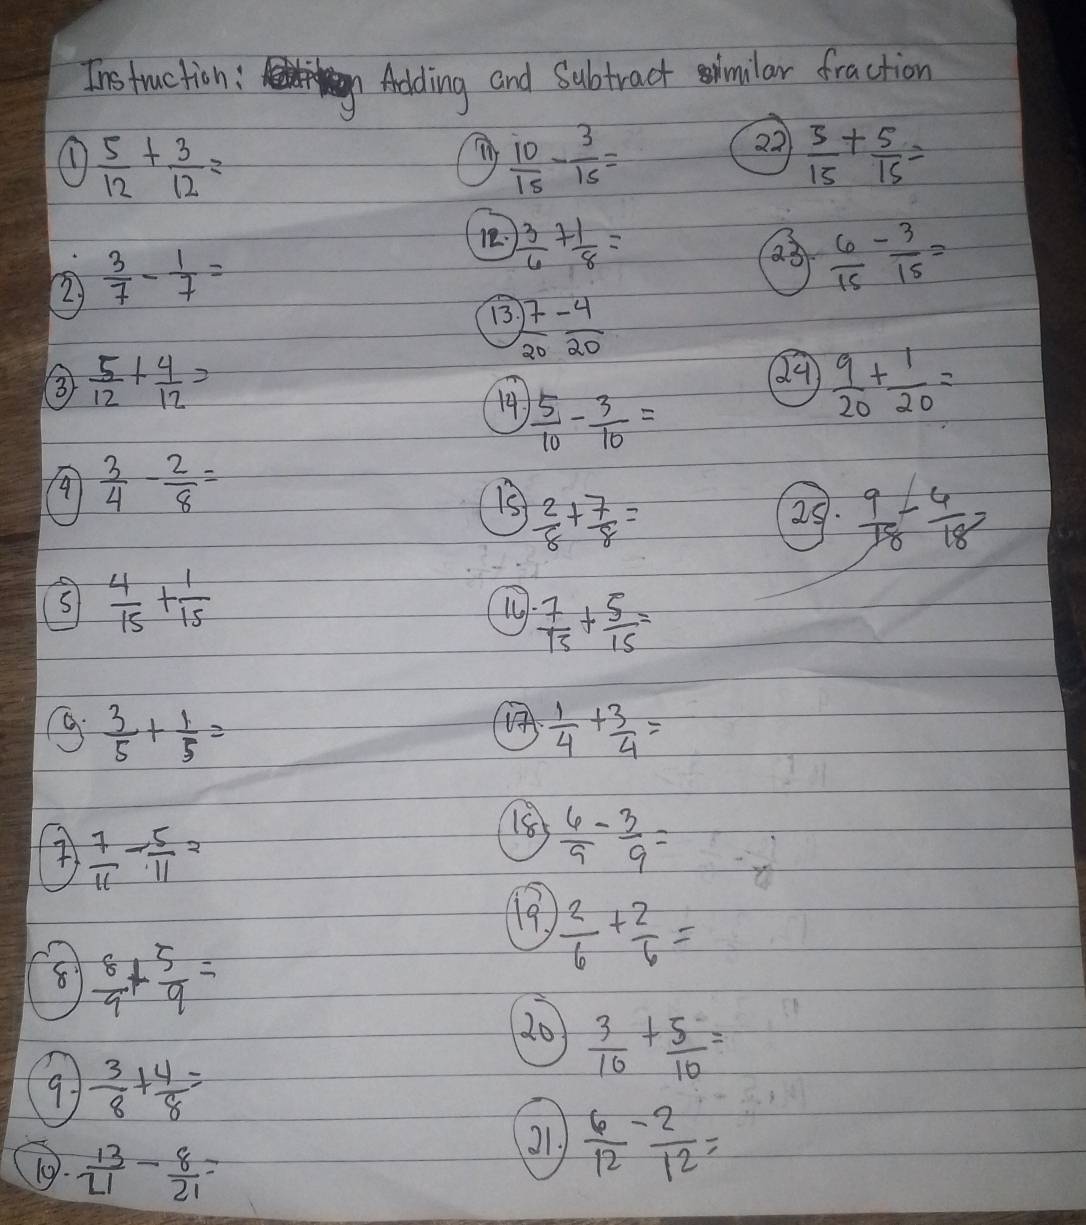 Instruction: Adding and Subtract similar fraction
1 5/12 + 3/12 =
2. 3/7 - 1/7 =
3 5/12 + 4/12 =
4 3/4 - 2/8 =
5 4/15 + 1/15
6. 3/5 + 1/5 =
7. 7/11 - 5/11 =
8. 8/9 + 5/9 =
9. 3/8 + 4/8 =
10. 13/21 - 8/21 =
11. 10/15 - 3/15 =
12. 3/6 + 1/8 =
13. 7/20 - 4/20
14. 5/10 - 3/10 =
15. 2/8 + 7/8 =
16. 7/15 + 5/15 =
17. 1/4 + 3/4 =
18. 6/9 - 3/9 =
19. 2/6 + 2/6 =
20. 3/10 + 5/10 =
21. 6/12 - 2/12 =
22 3/15 + 5/15 =
23. 6/15 - 3/15 =
24 9/20 + 1/20 =
25. 9/18 - 4/18 =